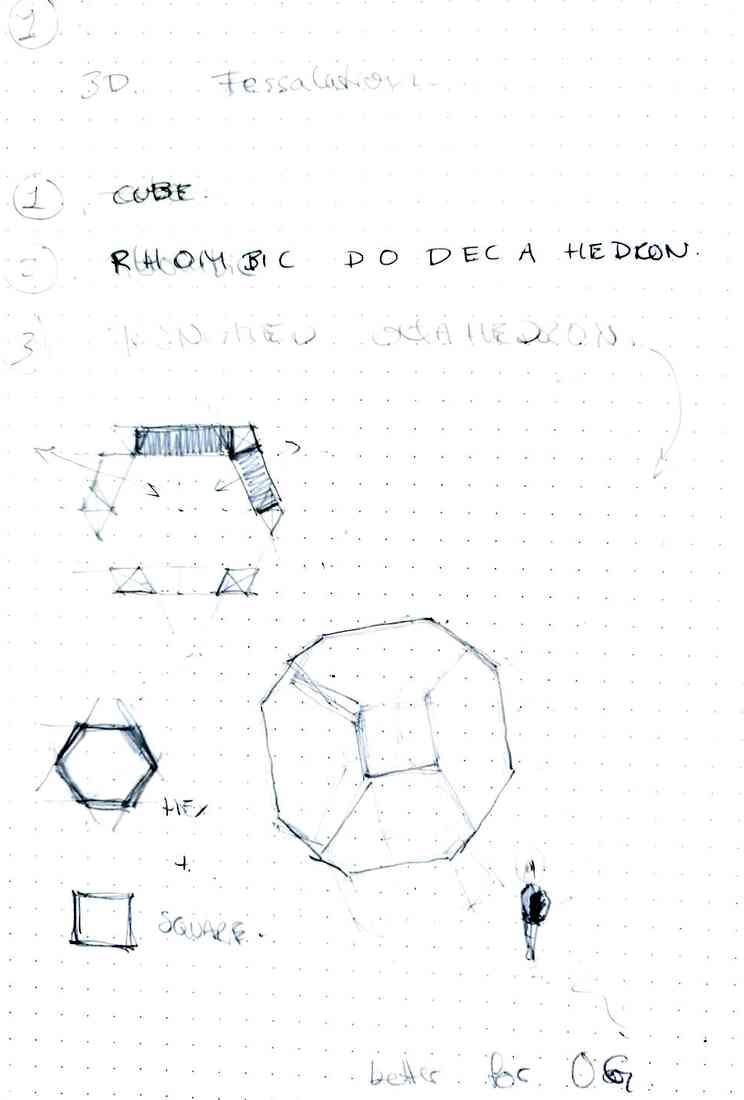 1
3D. Tessalations.
1 CUBE.
2 RHOMBIC DODECAHEDRON.
3 OCTAHEDRON.
HEX
+
SQUARE.
better for OG